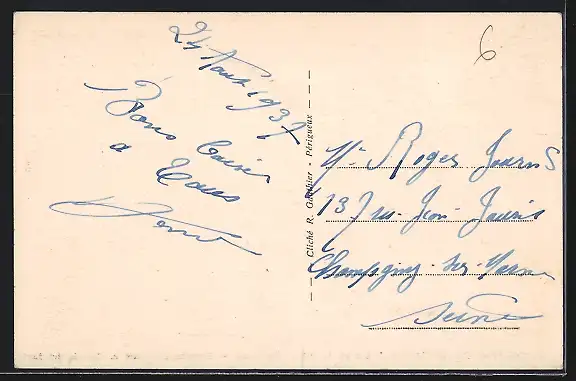 24 Aout 1937
Bons Baisers
a Tous
6
Cliché R. Gauthier - Périgueux
Mr Roger
137 rue Jean Jaurès
Champigny-sur-Marne
Seine